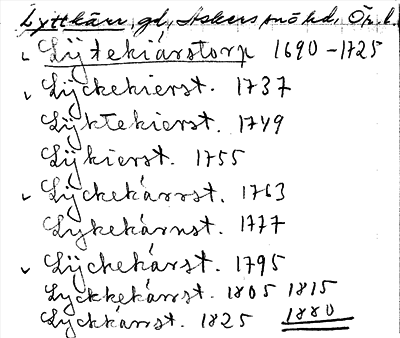 Lyttkärr, gd, Askers sn o hd, Ör. l.
Lÿtekiärstorp 1690-1725
Lÿckekierst. 1737
Lÿktekierst. 1749
Lÿkierst. 1755
Lÿckekärrst. 1763
Lykekärnst. 1777
Lÿckekärst. 1795
Lyckkekärrst. 1805 1815
Lyckkärrst. 1825 1880